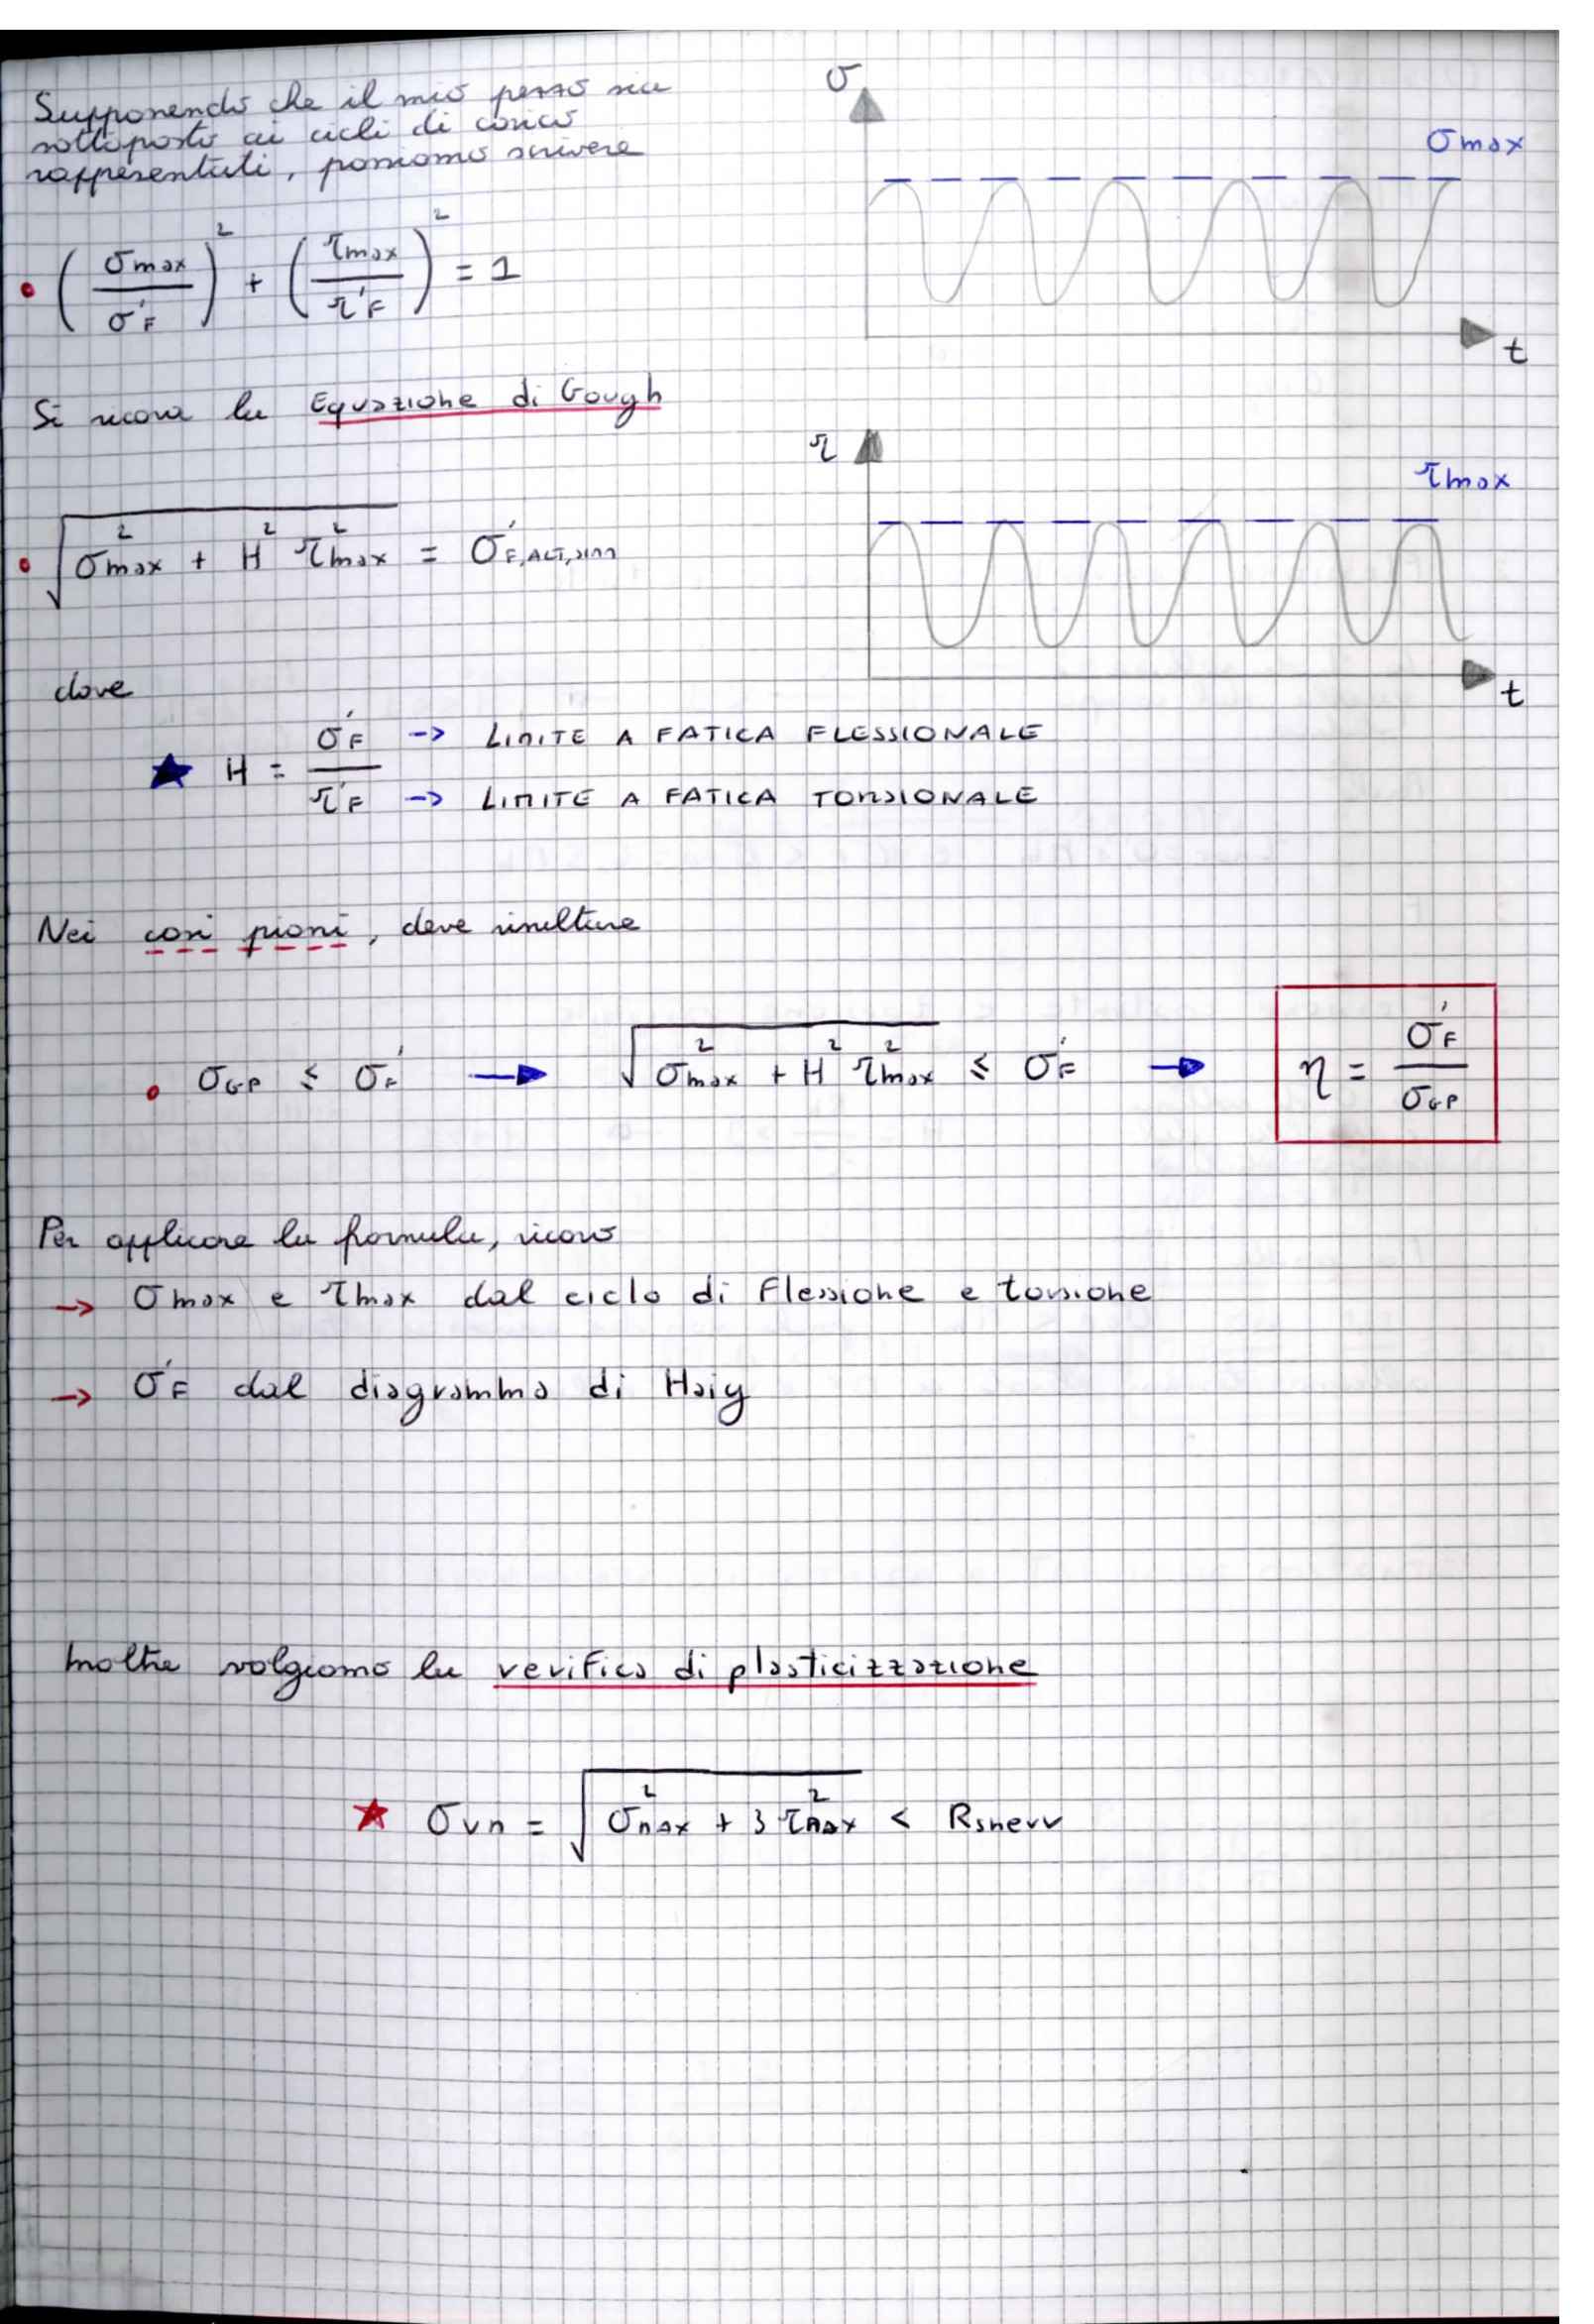 Supponendo che il mio pezzo sia
sottoposto ai cicli di carico
rappresentati, possiamo scrivere
σ
σmax
t
(σmax / σ'F)² + (τmax / τ'F)² = 1
Si ricava la Equazione di Gough
τ
τmax
t
√(σ²max + H² τ²max) = σ'F,ALT,SIM
dove
H = σ'F / τ'F
σ'F -> LIMITE A FATICA FLESSIONALE
τ'F -> LIMITE A FATICA TORSIONALE
Nei casi piani, deve risultare
σGP ≤ σ'F → √(σ²max + H² τ²max) ≤ σ'F → η = σ'F / σGP
Per applicare la formula, ricavo
-> σmax e τmax dal ciclo di Flessione e torsione
-> σ'F dal diagramma di Haig
Inoltre svolgiamo la verifica di plasticizzazione
σVM = √(σ²MAX + 3 τ²MAX) < Rsnerv